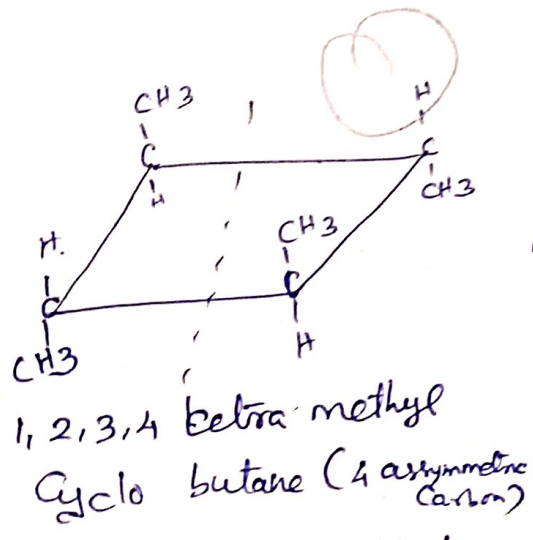 CH3
H
C
C
H
CH3
H.
CH3
C
C
CH3
H
1, 2, 3, 4 tetra methyl
Cyclo butane (4 assymmetric
Carbon)